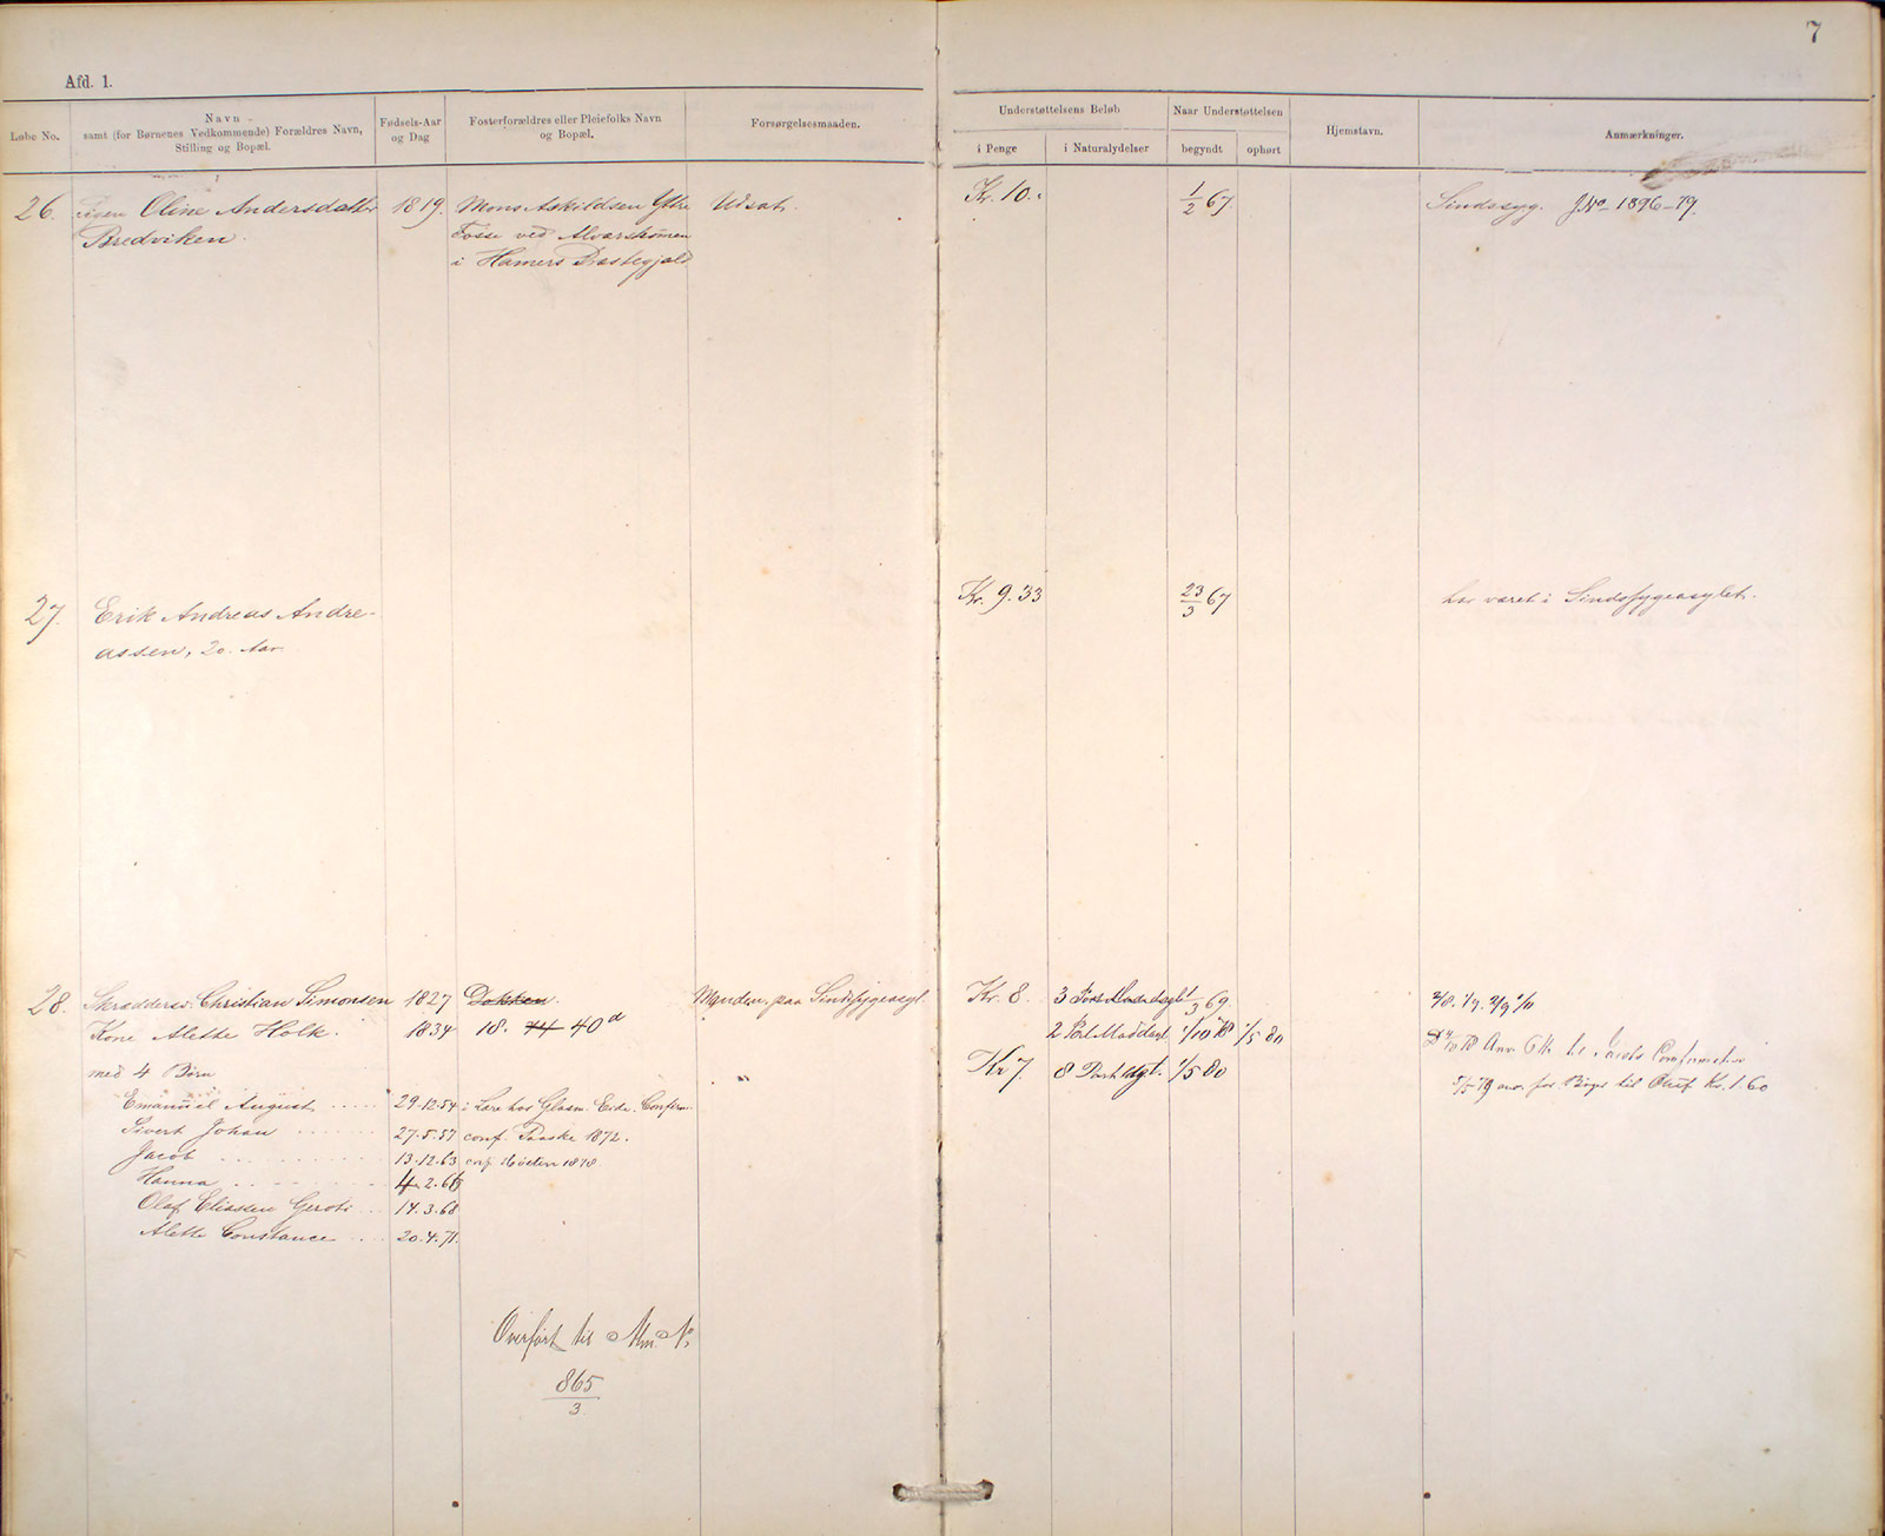 7
Afd. 1.
Løbe No.
Navn
samt (for Børnenes Vedkommende) Forældres Navn,
Stilling og Bopæl.
Fødsels-Aar
og Dag
Fosterforældres eller Pleiefolks Navn
og Bopæl.
Forsørgelsesmaaden.
Understøttelsens Beløb
i Penge
i Naturalydelser
Naar Understøttelsen
begyndt
ophørt
Hjemstavn.
Anmærkninger.
26. Pigen Oline Andersdatter 1819. Mons Askildsen Ytre Udsat. Kr. 10. 1/2 67 Sindssyg. J.No 1896-79.
Bredviken. Fosse ved Alvarstrømen
i Hamers Præstegjæld
27. Erik Andreas Andre- Kr. 9.33 23/3 67 har været i Sindssygeasylet.
assen, 20. Aar
28. Skrædders. Christian Simonsen 1827 Dokken. Manden paa Sindssygeasyl. Kr. 8. 3 Port. 1/3 69. 2/8. 1/9.
Kone Alette Holk. 1834 18. 44 40 a 2 Port Maddagl. 1/10 78 1/5 80
med 4 Børn Kr 7. 8 Port dgl. 1/5 80
5/5 79 anv. for Bøger til Oluf Kr. 1.60
Emanuel August 29.12.54 i Lære hos Glasm. Eide. Confirm.
Sivert Johan 27.5.57 conf. Paaske 1872.
Jacob 13.12.63 conf. Høsten 1878.
Hanna 4.2.66
Olaf Eliassen 14.3.68
Alette Constance 20.4.71.
Overført til Alm No
865/3